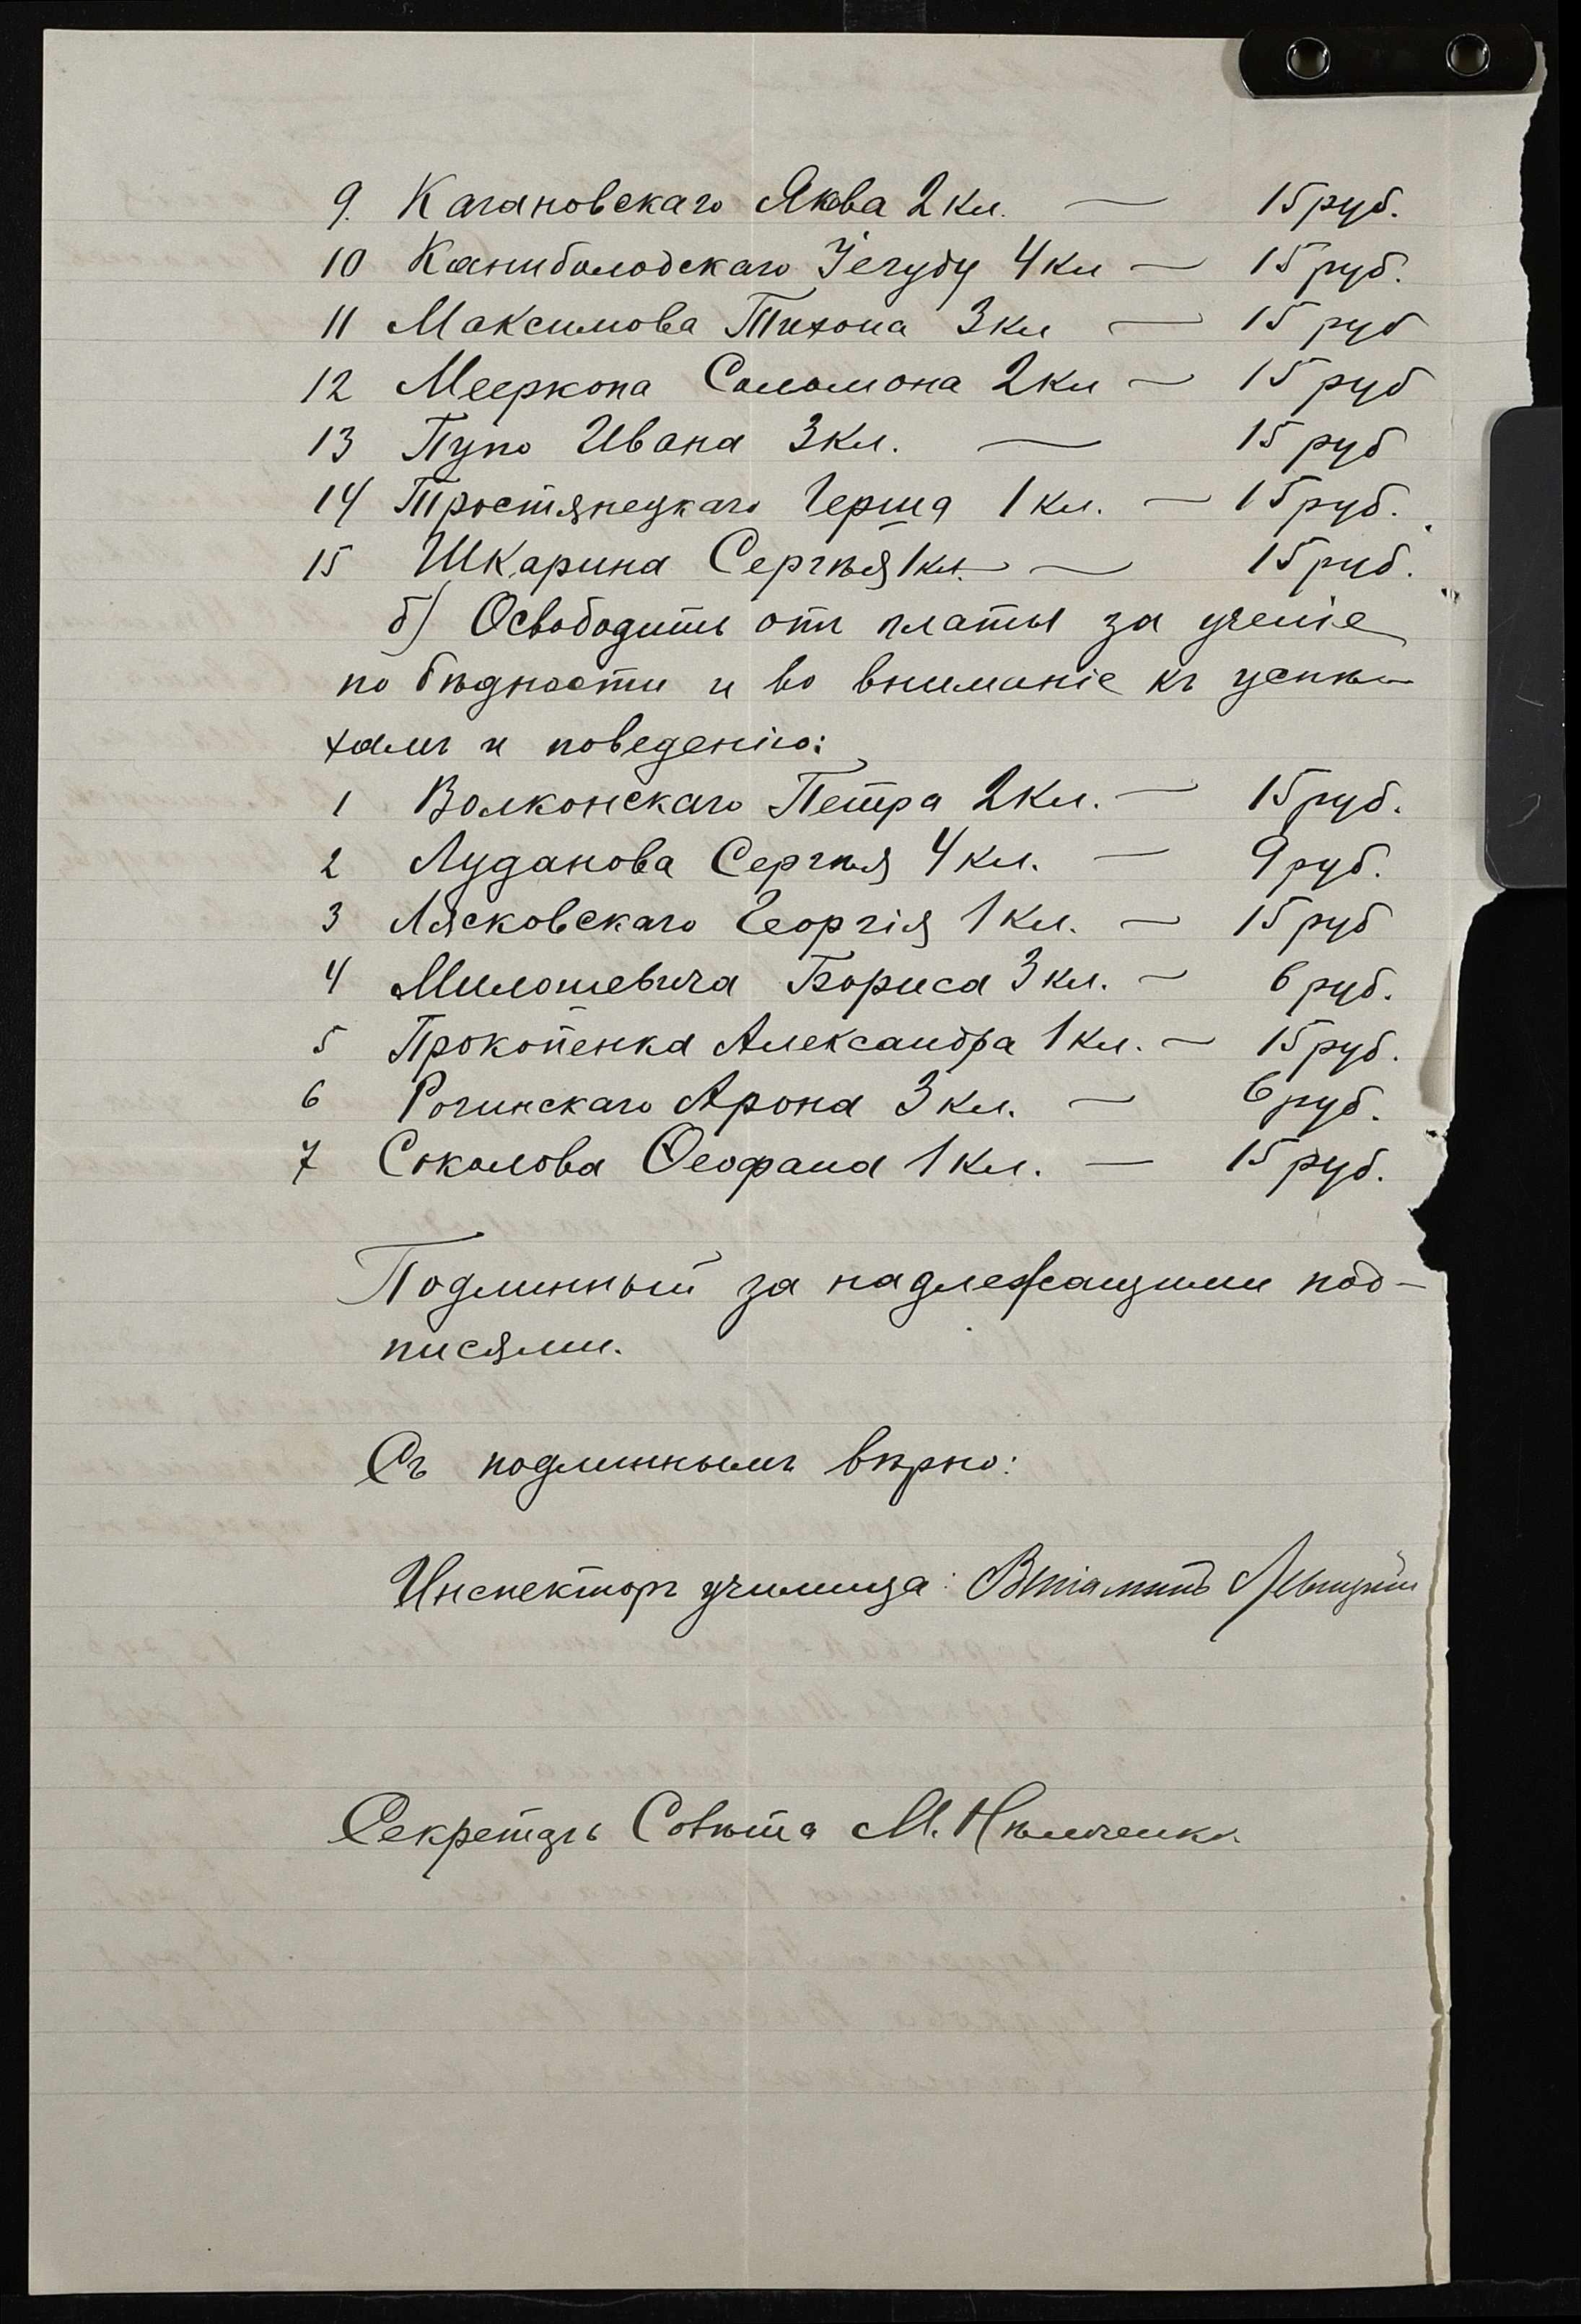 9. Кагановскаго Якова 2 кл. — 15 руб.
10 Канибалодскаго Іегуду 4 кл — 15 руб.
11 Максимова Тихона 3 кл — 15 руб
12 Мееркопа Соломона 2 кл — 15 руб
13 Пупо Ивана 3 кл. — 15 руб
14 Тростянецкаго Герша 1 кл. — 15 руб.
15 Шкарина Сергѣя 1 кл. — 15 руб.
б) Освободить отъ платы за ученіе
по бѣдности и во вниманіе къ успѣ-
хамъ и поведенію:
1 Волконскаго Петра 2 кл. — 15 руб.
2 Луданова Сергѣя 4 кл. — 9 руб.
3 Лясковскаго Георгія 1 кл. — 15 руб
4 Милошевича Бориса 3 кл. — 6 руб.
5 Прокопенка Александра 1 кл. — 15 руб.
6 Рогинскаго Арона 3 кл. — 6 руб.
7 Соколова Ѳеофана 1 кл. — 15 руб.
Подлинный за надлежащими под-
писями.
Съ подлиннымъ вѣрно:
Инспекторъ училища: Веніаминъ Левицкій
Секретарь Совѣта М. Нѣмченко